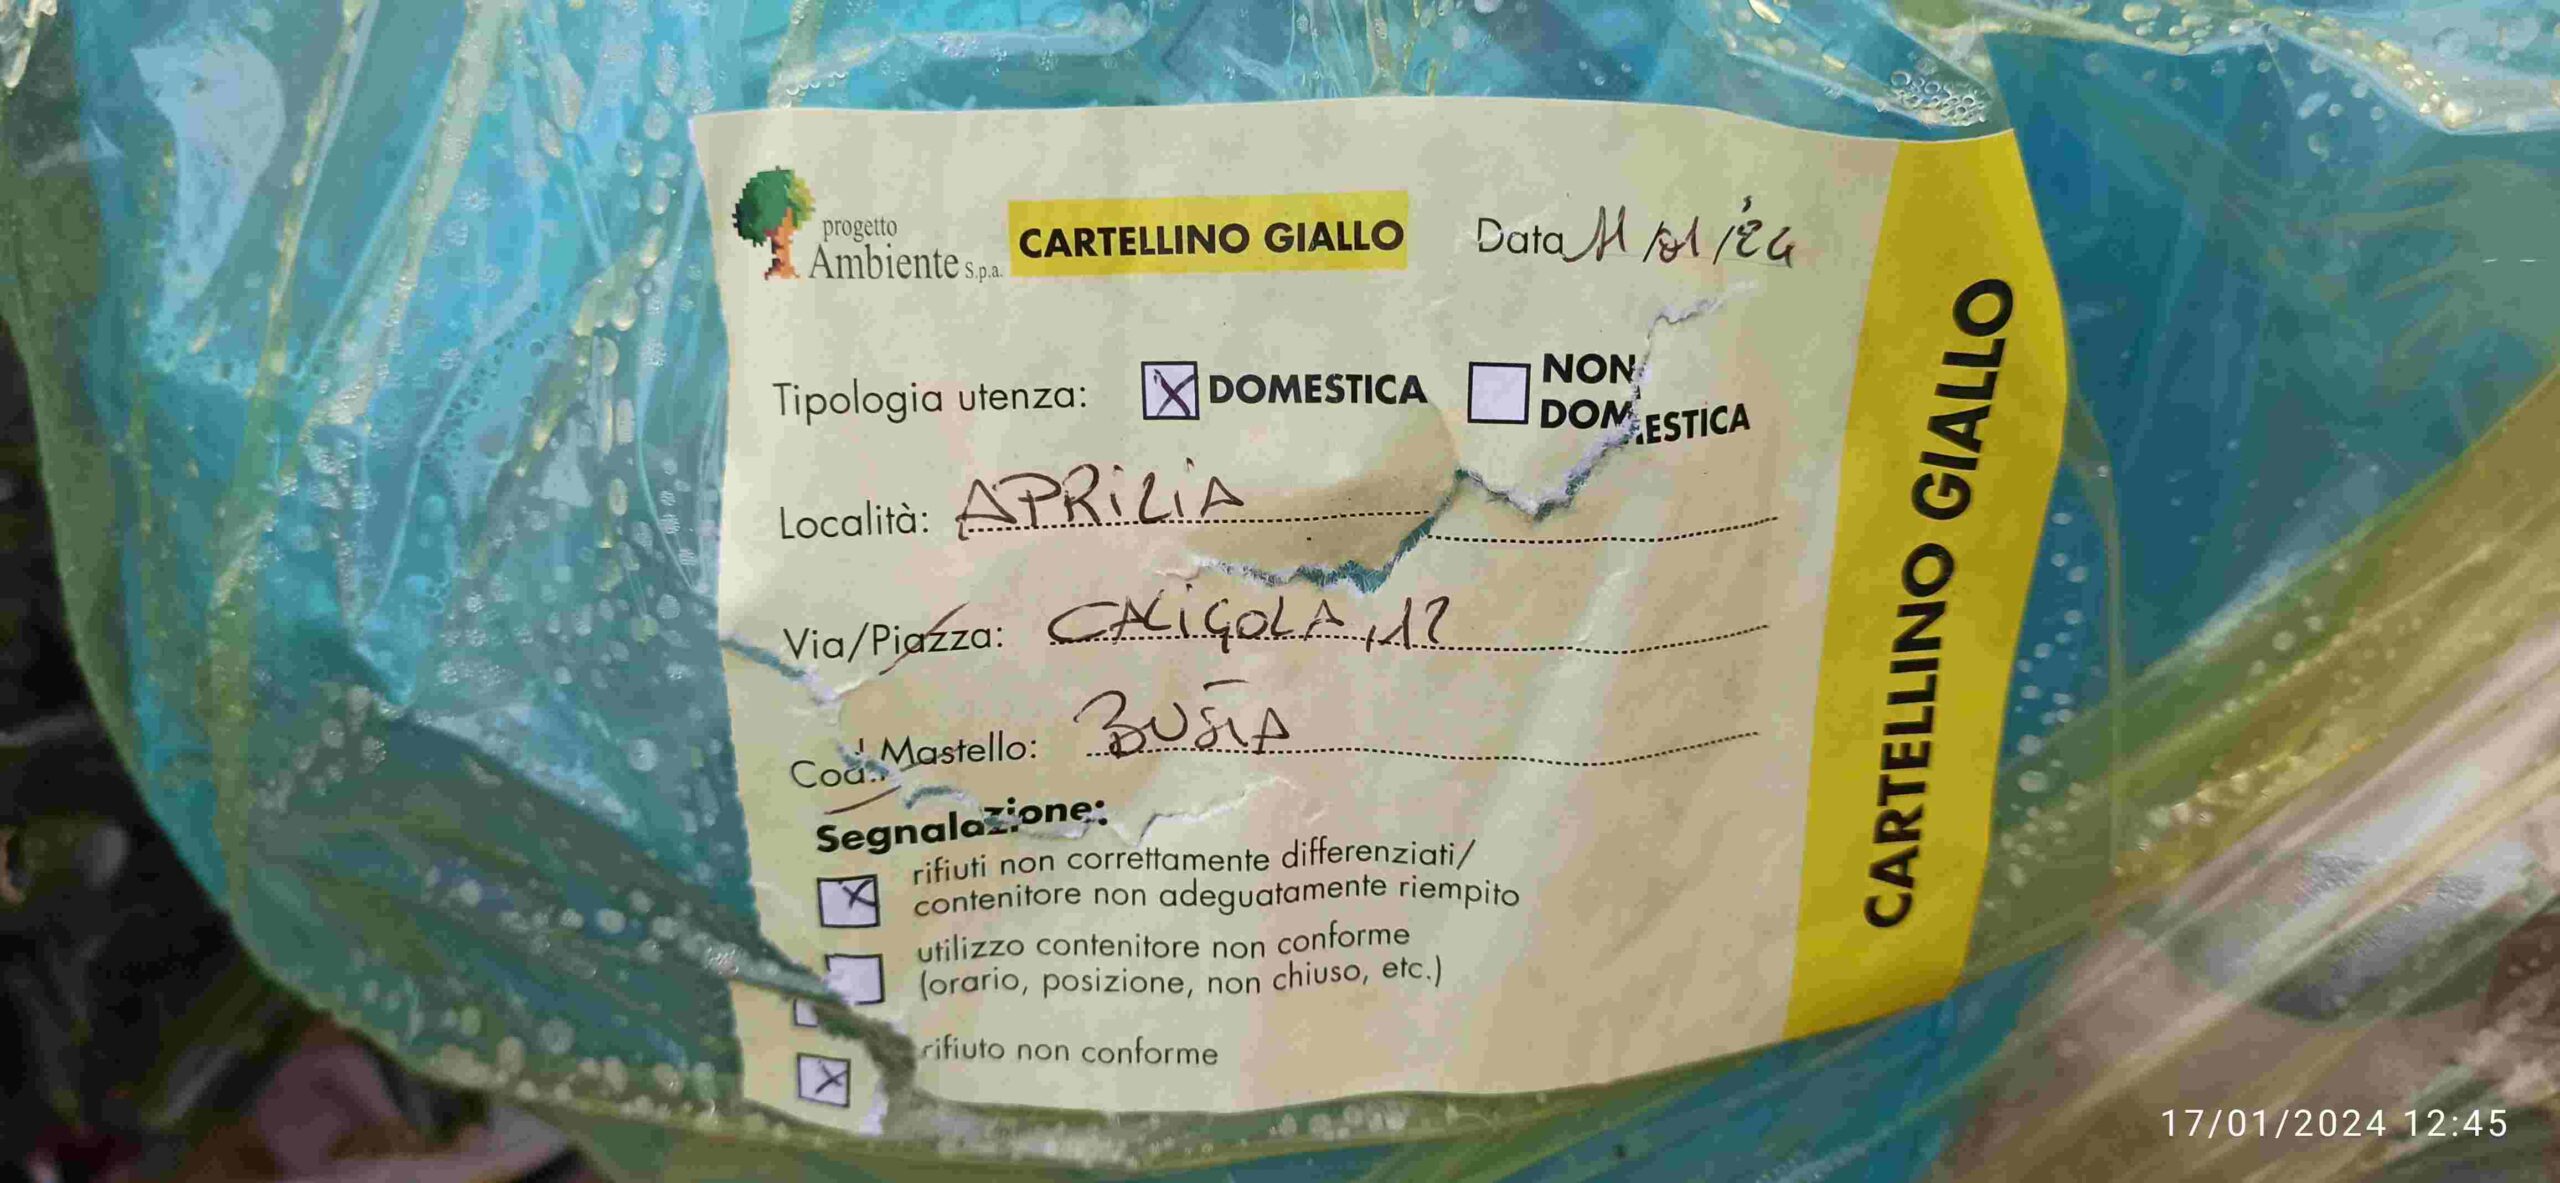 progetto
Ambiente s.p.a.
CARTELLINO GIALLO
Data 11/01/'24
Tipologia utenza: DOMESTICA NON DOMESTICA
Località: APRILIA
Via/Piazza: CALIGOLA, 12
Cod. Mastello: BUSTA
Segnalazione:
rifiuti non correttamente differenziati/
contenitore non adeguatamente riempito
utilizzo contenitore non conforme
(orario, posizione, non chiuso, etc.)
rifiuto non conforme
CARTELLINO GIALLO
17/01/2024 12:45